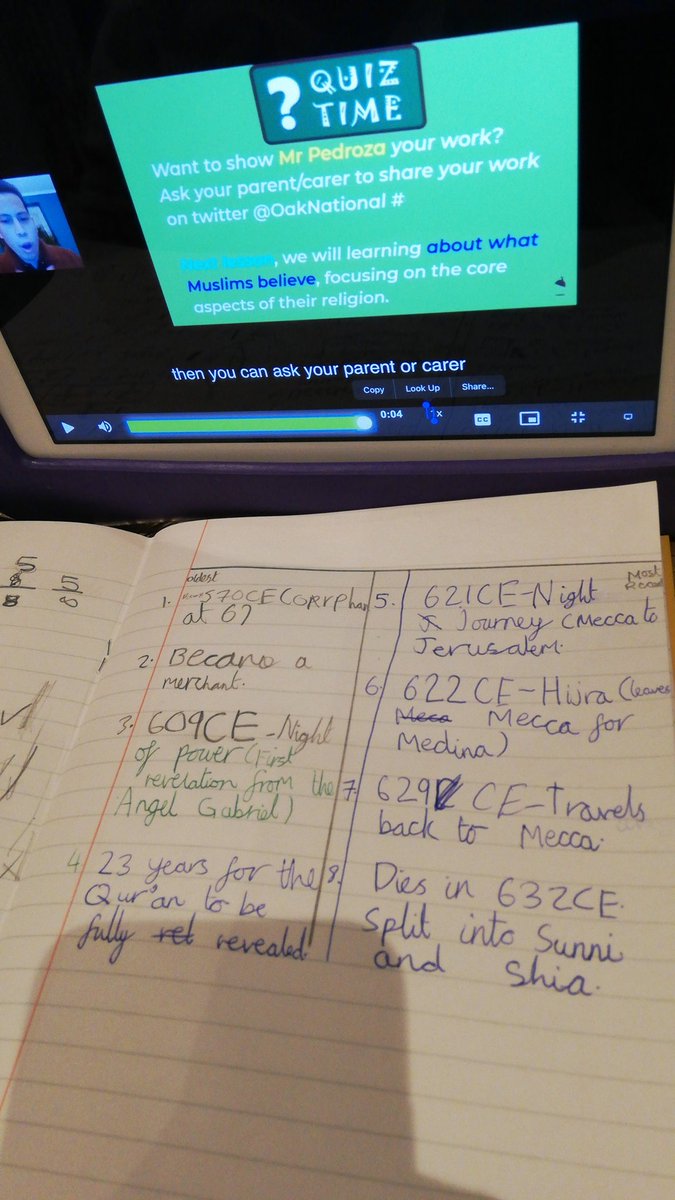 ? QUIZ
TIME
Want to show Mr Pedroza your work?
Ask your parent/carer to share your work
on twitter @OakNational #
Next lesson, we will learning about what
Muslims believe, focusing on the core
aspects of their religion.
then you can ask your parent or carer
Copy Look Up Share...
0:04 1x CC
5
8
8
5
8
oldest
1. 570CE (orphan
at 6)
2. Become a
merchant.
3. 609CE-Night
of power (First
revelation from the
Angel Gabriel)
4. 23 years for the
Qur'an to be
fully ret revealed
Most
Recent
5. 621CE-Night
Journey (Mecca to
Jerusalem.
6. 622 CE-Hijra (leaves
Meca Mecca for
Medina)
7. 629 CE-Travels
back to Mecca.
8. Dies in 632CE.
Split into Sunni
and Shia.